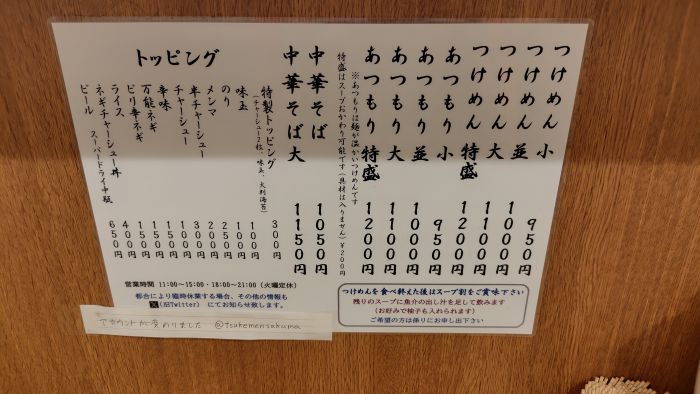 つけめん 小 950円
つけめん 並 1000円
つけめん 大 1100円
つけめん 特盛 1200円
あつもり 小 950円
あつもり 並 1000円
あつもり 大 1100円
あつもり 特盛 1200円
※あつもりは麺が温かいつけめんです
特盛はスープおかわり可能です(具材は入りません)¥200円
中華そば 1050円
中華そば大 1150円
トッピング
特製トッピング 300円
(チャーシュー2枚、味玉、大判海苔)
味玉 100円
のり 100円
メンマ 250円
半チャーシュー 200円
チャーシュー 300円
辛味 100円
万能ネギ 100円
ピリ辛ネギ 150円
ライス 150円
ネギチャーシュー丼 400円
ビール スーパードライ中瓶 650円
営業時間 11:00~15:00・18:00~21:00(火曜定休)
都合により臨時休業する場合、その他の情報も
X(旧Twitter) にてお知らせ致します。
アカウントが変わりました @tsukemensakuma
つけめんを食べ終えた後はスープ割をご賞味下さい
残りのスープに魚介の出し汁を足して飲みます
(お好みで柚子も入れられます)
ご希望の方は係りにお申し出下さい